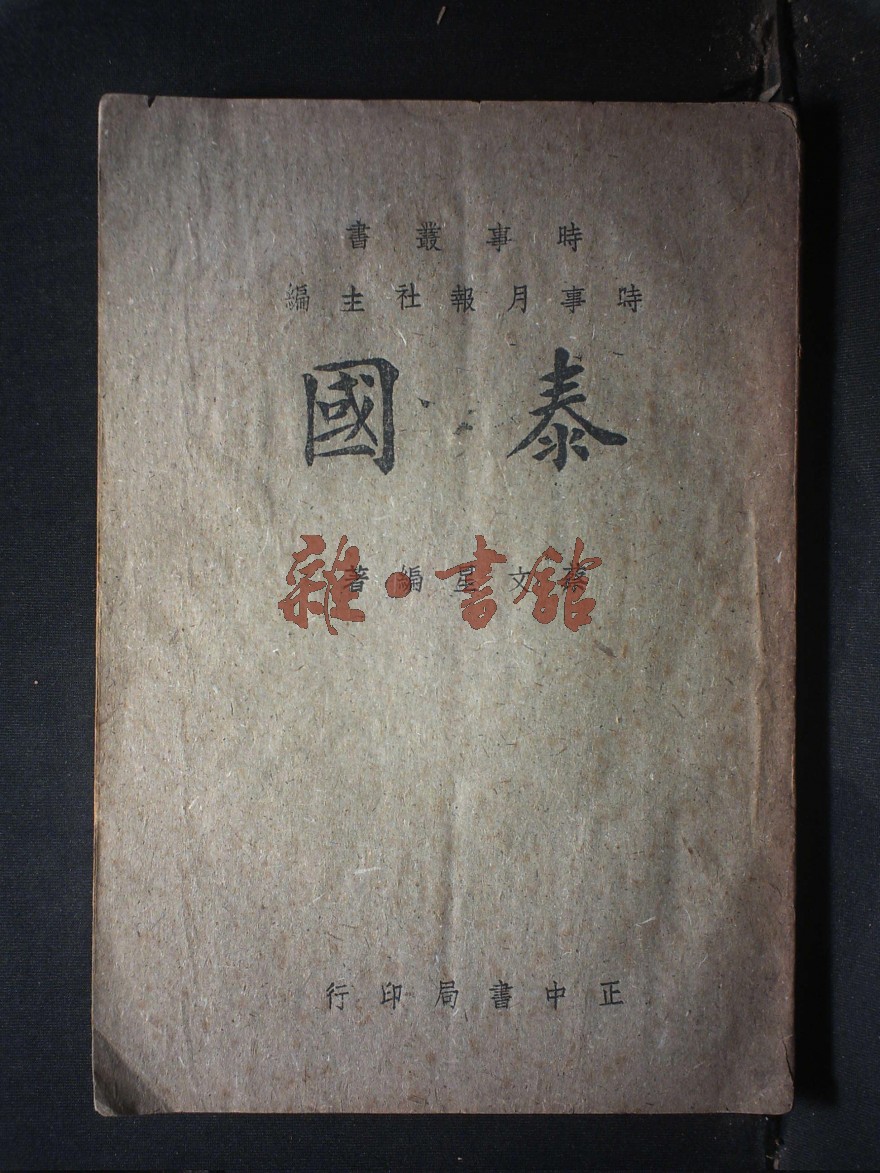 時事叢書
時事月報社主編
泰國
蔡文星編著
雜·書館
正中書局印行